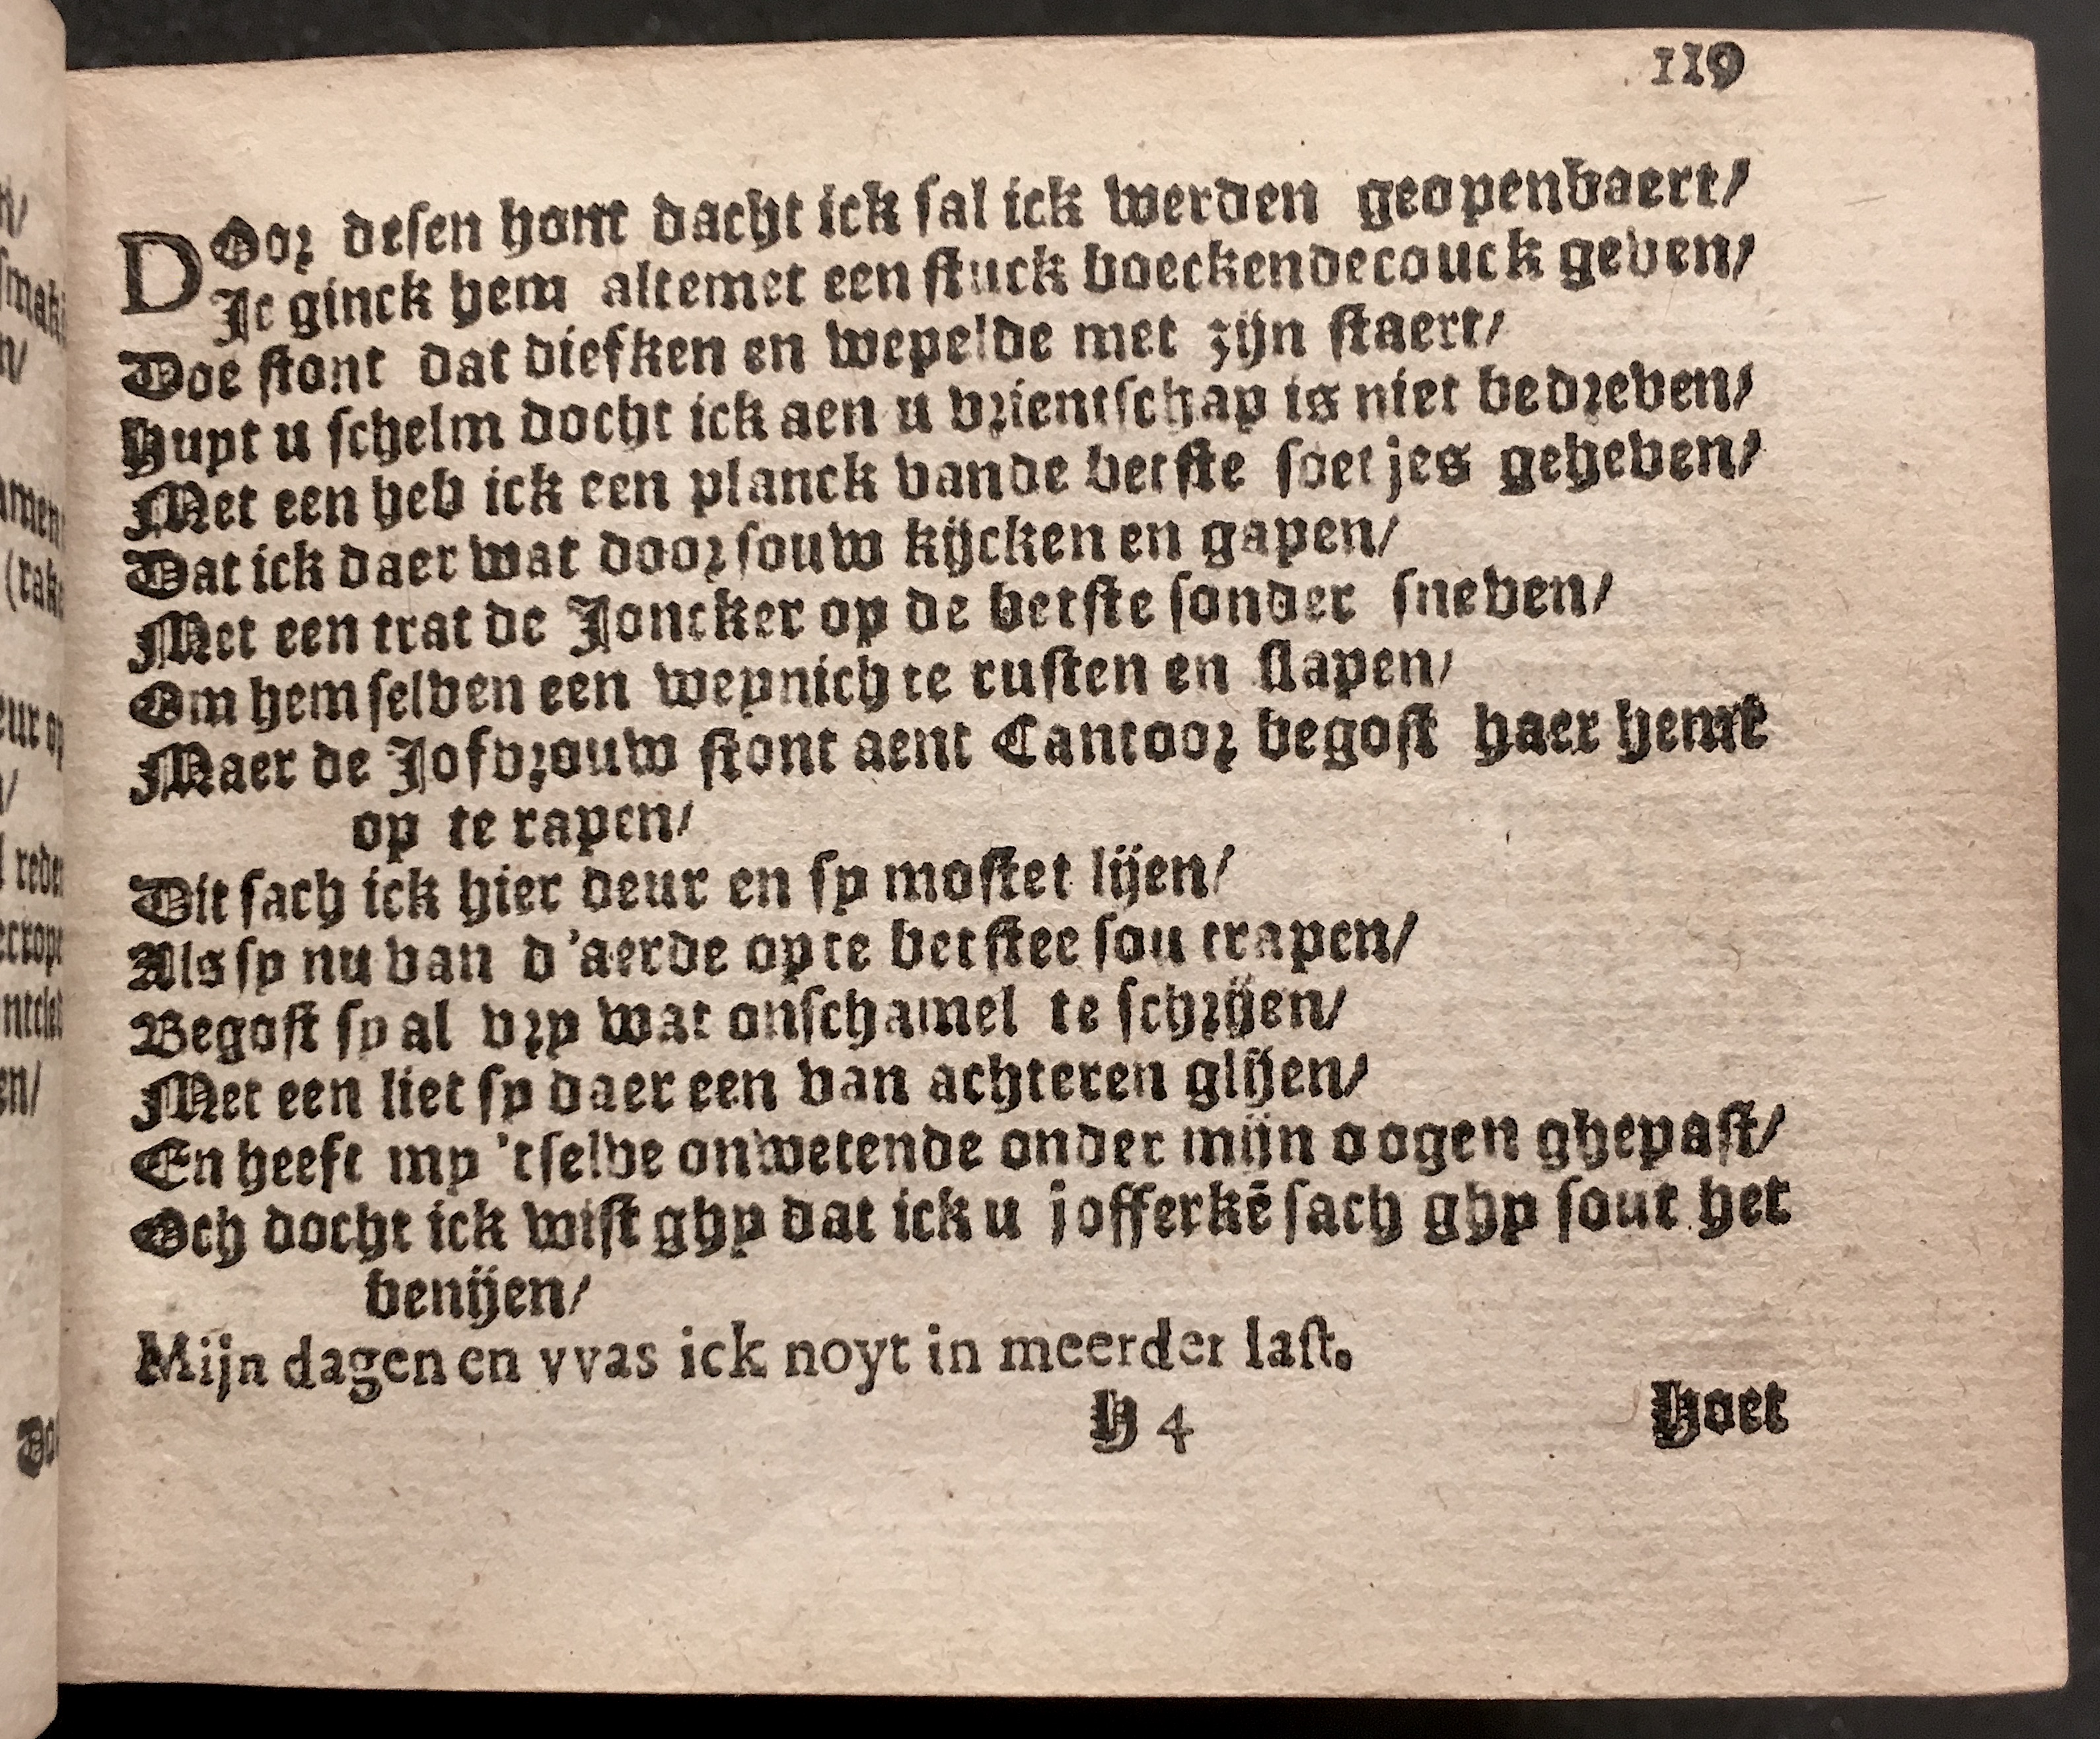 119
DOor desen hont dacht ick sal ick werden geopenbaert/
Ic ginck hem altemet een stuck boeckendecouck geven/
Doe stont dat diefken en wepelde met zijn staert/
Hupt u schelm docht ick aen u vrientschap is niet bedreven/
Met een heb ick een planck vande betste soetjes geheven/
Dat ick daer wat door souw kijcken en gapen/
Met een trat de Joncker op de betste sonder sneven/
Om hem selven een weynich te rusten en slapen/
Maer de Jofvrouw stont aent Cantoor begost haer hemt
op te rapen/
Dit sach ick hier deur en sy mostet lijen/
Als sy nu van d'aerde op te betstee sou trapen/
Begost sy al vry wat onschamel te schrijen/
Met een liet sy daer een van achteren glijen/
En heeft my 'tselve onwetende onder mijn oogen ghepast/
Och docht ick wist ghy dat ick u jofferkē sach ghy sout het
benijen/
Mijn dagen en vvas ick noyt in meerder last.
H 4
Hoet